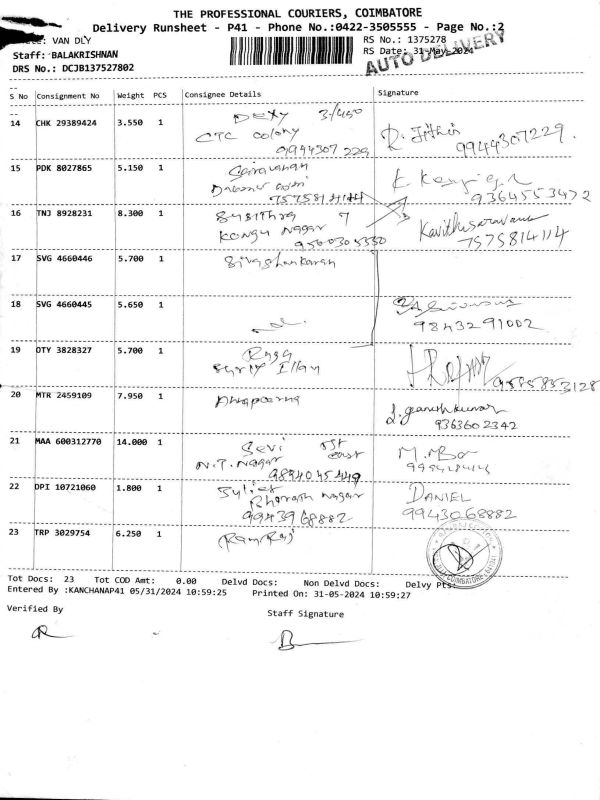 THE PROFESSIONAL COURIERS, COIMBATORE
Delivery Runsheet - P41 - Phone No.:0422-3505555 - Page No.:2
VAN DLY
RS No.: 1375278
Staff: BALAKRISHNAN
RS Date: 31-May-2024
AUTO DELIVERY
DRS No.: DCJB137527802
S No Consignment No Weight PCS Consignee Details Signature
14 CHK 29389424 3.550 1 DEXY 3/450
CTC colony
9944307229
R. Jithin
9944307229.
15 PDK 8027865 5.150 1 Saravanan
7575814114
9364553472
16 TNJ 8928231 8.300 1 Susithra 7
Kongu Nagar
Kavithasaravana
7575814114
17 SVG 4660446 5.700 1 Sivashankaran
18 SVG 4660445 5.650 1
9843291002
19 OTY 3828327 5.700 1 Raga
Surly Illam
9585853128
20 MTR 2459109 7.950 1
J. ganeshkumar
9363602342
21 MAA 600312770 14.000 1 Sevi
east
N.T. Nagar
9894045449
22 DPI 10721060 1.800 1
Bharath Nagar
9943968882
DANIEL
9943068882
23 TRP 3029754 6.250 1 Ram Raj
COIMBATORE
Tot Docs: 23 Tot COD Amt: 0.00 Delvd Docs: Non Delvd Docs: Delvy Pts:
Entered By :KANCHANAP41 05/31/2024 10:59:25 Printed On: 31-05-2024 10:59:27
Verified By
Staff Signature